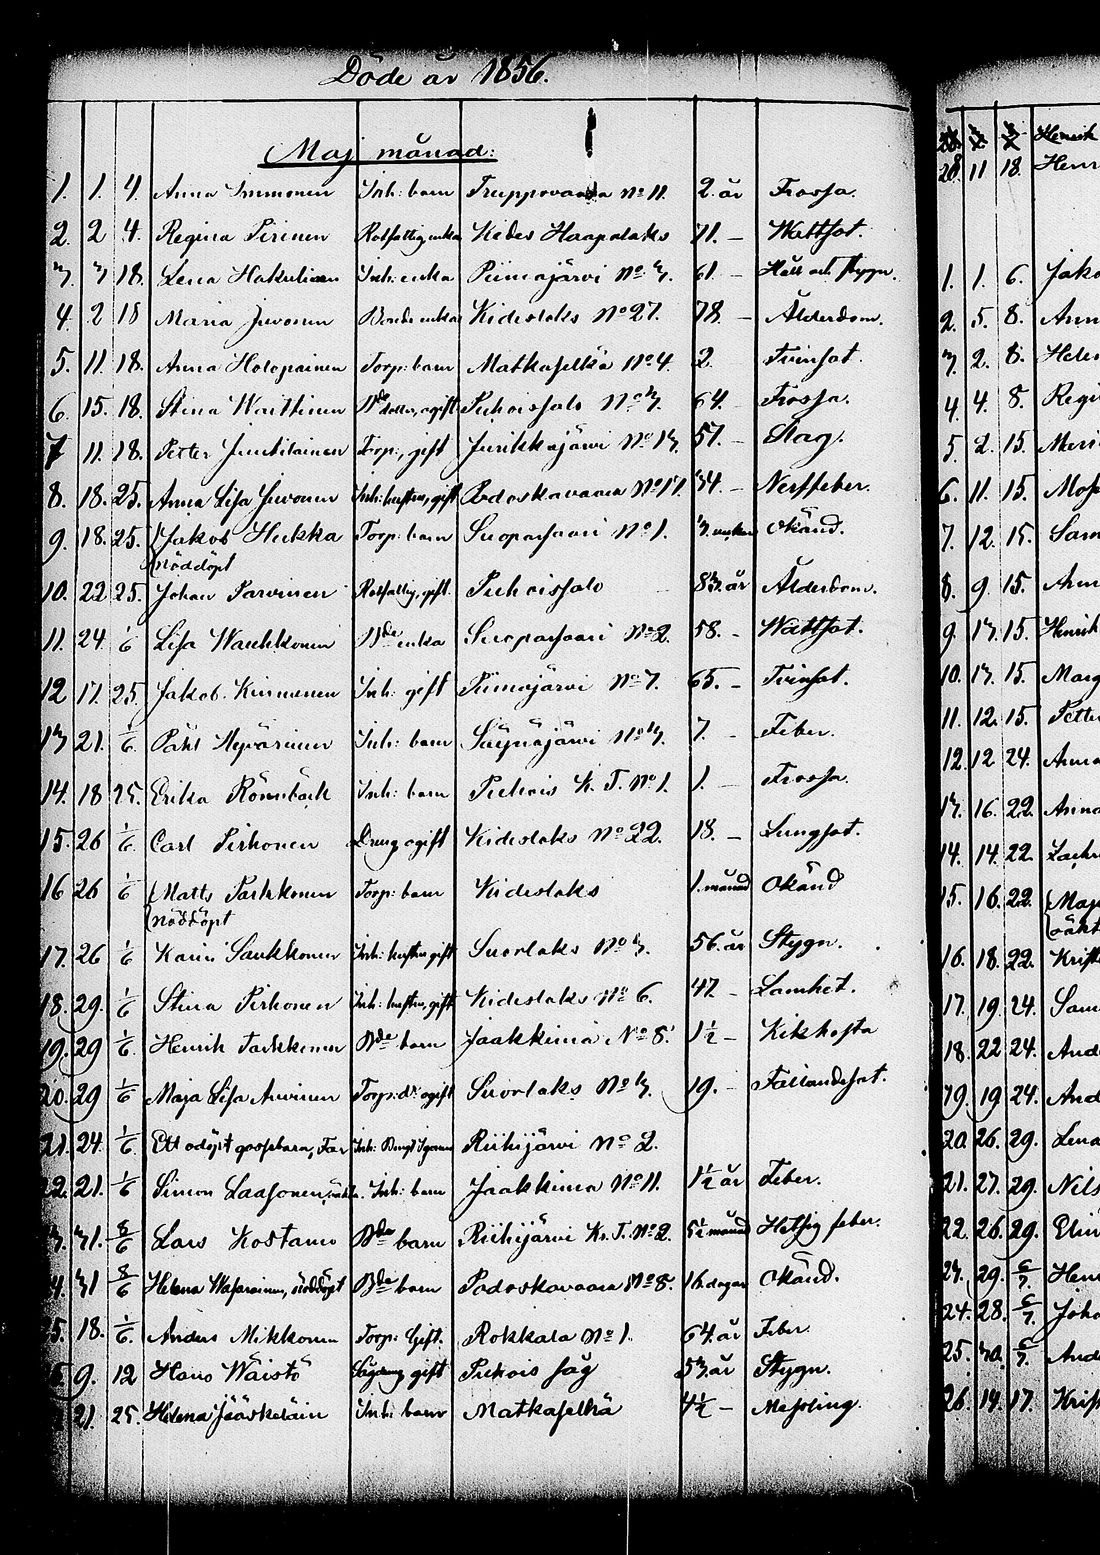 Döde år 1856.
Maj månad:
1. 1. 4. Anna Immonen Inh: barn Truppovaara No 11. 2. år Frossa.
2. 2 4. Regina Pirinen Rotfattig, enka Kides Haapolaks 71. – Wattsot.
3 3 18. Lena Hakulinen Inh: enka Piimäjärvi No 3. 61. – Håll och stygn.
4. 2 18 Maria Juvonen Bonde enka Kideslaks No 27. 78. – Ålderdom.
5. 11. 18. Anna Holopainen Torp: barn Matkaselkä No 4. 2. Tvinsot.
6. 15. 18. Stina Waittinen Bde dotter, ogift Puhoissalo No 3. 64. – Frossa.
7 11. 18. Petter Juutilainen Torp:, gift Junikkajärvi No 13. 57. – Slag.
8. 18. 25. Anna Lisa Juvonen Inh: hustru, gift Podoskavaara No 17. 34. – Nerffeber.
9. 18. 25. Jakob Hukka Torp: barn Suoparsaari No 1. 3. veckor Okänd.
nöddöpt
10. 22 25. Johan Parvinen Rotfattig, gift. Puhoissalo 83. år Ålderdom.
11. 24. 1/6 Lisa Wauhkonen Bde enka Suoparsaari No 2. 58. – Wattsot.
12 17. 25. Jakob Kinnunen Inh: gift Piimäjärvi No 7. 65. – Tvinsot.
13 21. 1/6. Påhl Hyvärinen Inh: barn Säynäjärvi No 3. 7. – Feber.
14. 18 25. Erika Rönnbäck Inh: barn Puhois K. T. No 1. 1. – Frossa.
15. 26 1/6. Carl Pirhonen Dreng ogift Kideslaks No 22. 18. – Lungsot.
16 26 1/6 Matts Parkkonen Torp: barn Kideslaks 1. månad Okänd
nöddöpt
17. 26 1/6 Karin Saukkonen Inh: hustru gift Suorlaks No 3. 56. år Stygn.
18. 29. 1/6 Stina Pirhonen Inh: hustru, gift Kideslaks No 6. 47. – Lamhet.
19. 29 1/6. Henrik Parkkonen Bde barn Jaakkima No 8. 1½ – Kikhosta
20. 29 1/6 Maja Lisa Arvinen Torp: dr. ogift Suorlaks No 3. 19. – Fallandesot.
21. 24. 1/6. Ett odöpt gossebarn, Far Inh: Riihijärvi No 2.
22. 21. 1/6 Simon Laasonen, Inh: barn Jaakkima No 11. 1½ år Feber.
3. 31. 8/6 Lars Kostamo Bde barn Riihijärvi K. T. No 2. 5½ månad Hetsig feber.
4. 31 8/6 Helena Wasarainen, nöddöpt Bde barn Podoskavaara No 8. 16. dagar Okänd.
5. 18. 1/6. Anders Mikkonen Torp: Gift. Rokkala No 1. 64. år Feber.
6 9. 12 Hans Wäistö gift Puhois såg 53. år Stygn.
21. 25. Helena Jääskeläin Inh: barn Matkaselkä 4½ – Messling.
28. Henrik
28. 11 18. Henr
1. 1. 6. Jako
2. 5. 8. Ann
3. 2. 8. Hele
4. 4. 8. Regi
5. 2. 15. Mari
6. 11. 15. Mos
7. 12. 15. Sam
8. 9. 15. Ann
9. 13. 15. Henrik
10. 13. 15. Marg
11. 12. 15. Pette
12. 12 24. Anna
13. 16. 22. Anna
14. 14. 22. Zachr
15. 16. 22. Maja
oäkt
16. 18. 22. Krist
17. 19. 24. Sam
18. 22 24. And
19. 19 24. And
20. 26. 29. Lena
21. 27. 29. Nils
22. 26. 29. Elin
23. 29. 6/7. Hen
24. 28. 6/7. Joha
25. 30. 6/7. And
26. 14. 17. Kris